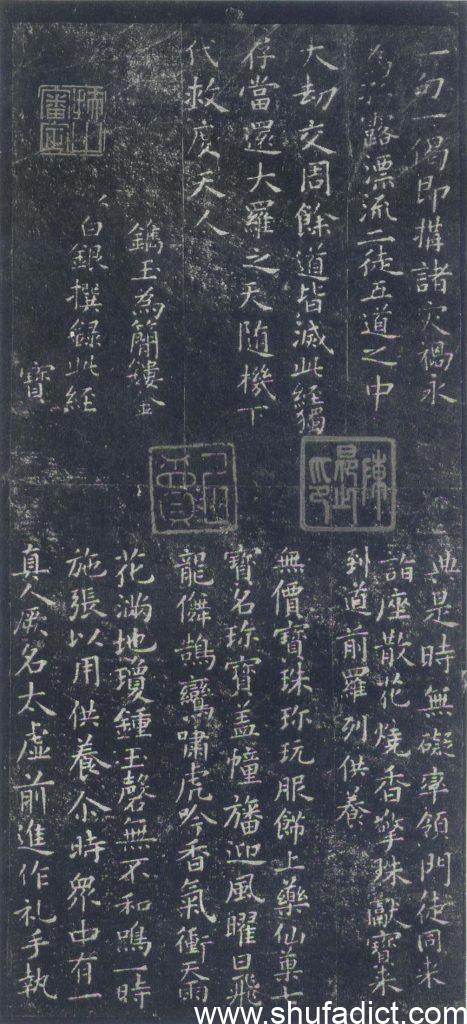 一句一偈即搆諸灾禍永
為露漂流二徒五道之中
大劫交周餘道皆滅此經獨
存當還大羅之天随機下
代救度天人
鐫玉為簡鏤金
白銀撰録此經
寶
典是時無礙率領門徒同来
詣座散花燒香擎珠獻寶来
到道前羅列供養
無價寶珠珎玩服飾上藥仙菓七
寶名珎寶盖幢旛迎風曜日飛
龍儛鵠鸞嘯虎吟香氣衝天雨
花滿地瓊鍾玉磬無不和鳴一時
施張以用供養尒時衆中有一
真人厥名太虚前進作礼手執
www.shufadict.com